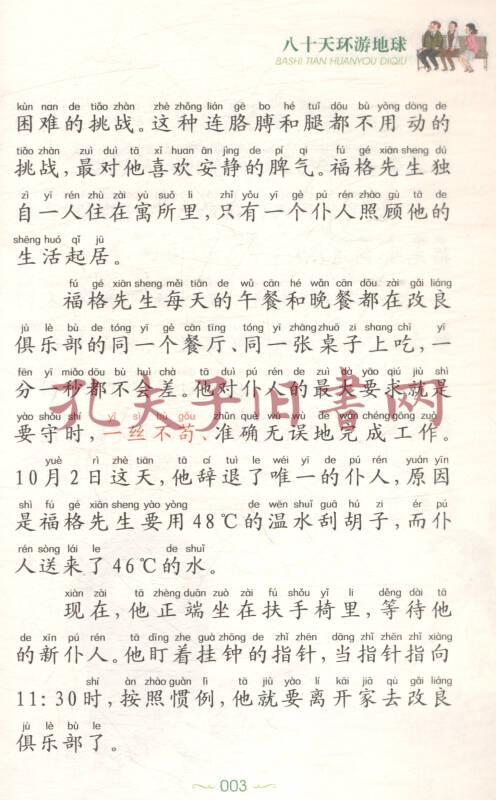 八十天环游地球
BASHI TIAN HUANYOU DIQIU
kùn nan de tiǎo zhàn zhè zhǒng lián gē bo hé tuǐ dōu bù yòng dòng de
困难的挑战。这种连胳膊和腿都不用动的
tiǎo zhàn zuì duì tā xǐ huan ān jìng de pí qi fú gé xiān sheng dú
挑战,最对他喜欢安静的脾气。福格先生独
zì yī rén zhù zài yù suǒ li zhǐ yǒu yī gè pú rén zhào gù tā de
自一人住在寓所里,只有一个仆人照顾他的
shēng huó qǐ jū
生活起居。
fú gé xiān sheng měi tiān de wǔ cān hé wǎn cān dōu zài gǎi liáng
福格先生每天的午餐和晚餐都在改良
jù lè bù de tóng yī gè cān tīng tóng yī zhāng zhuō zi shang chī yī
俱乐部的同一个餐厅、同一张桌子上吃,一
fēn yī miǎo dōu bù huì chà tā duì pú rén de zuì dà yāo qiú jiù shì
分一秒都不会差。他对仆人的最大要求就是
yào shǒu shí yī sī bù gǒu zhǔn què wú wù de wán chéng gōng zuò
要守时,一丝不苟、准确无误地完成工作。
yuè rì zhè tiān tā cí tuì le wéi yī de pú rén yuán yīn
10月2日这天,他辞退了唯一的仆人,原因
shì fú gé xiān sheng yào yòng de wēn shuǐ guā hú zi ér pú
是福格先生要用48℃的温水刮胡子,而仆
rén sòng lái le de shuǐ
人送来了46℃的水。
xiàn zài tā zhèng duān zuò zài fú shǒu yǐ li děng dài tā
现在,他正端坐在扶手椅里,等待他
de xīn pú rén tā dīng zhe guà zhōng de zhǐ zhēn dāng zhǐ zhēn zhǐ xiàng
的新仆人。他盯着挂钟的指针,当指针指向
shí àn zhào guàn lì tā jiù yào lí kāi jiā qù gǎi liáng
11:30时,按照惯例,他就要离开家去改良
jù lè bù le
俱乐部了。
孔夫子旧书网
003